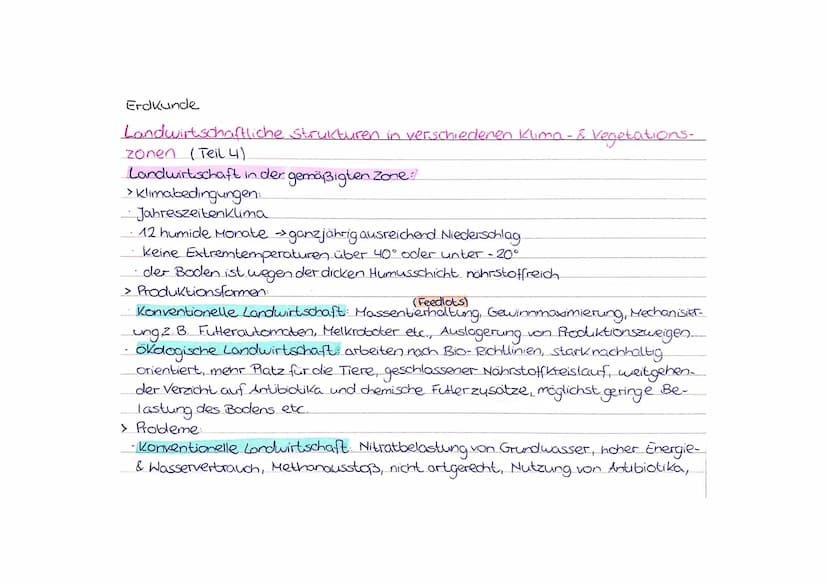 Erdkunde
Landwirtschaftliche Strukturen in verschiedenen Klima- & Vegetations-
zonen (Teil 4)
Landwirtschaft in der gemäßigten Zone:
> Klimabedingungen:
· Jahreszeitenklima
· 12 humide Monate → ganzjährig ausreichend Niederschlag
· Keine Extremtemperaturen über 40° oder unter -20°
· der Boden ist wegen der dicken Humusschicht nährstoffreich
> Produktionsformen:
(Feedlots)
· Konventionelle Landwirtschaft: Massentierhaltung, Gewinnmaximierung, Mechanisier-
ung z.B. Futterautomaten, Melkroboter etc., Auslagerung von Produktionszweigen
· ökologische Landwirtschaft: arbeiten nach Bio-Richtlinien, stark nachhaltig
orientiert, mehr Platz für die Tiere, geschlossener Nährstoffkreislauf, weitgehen-
der Verzicht auf Antibiotika und chemische Futterzusätze, möglichst geringe Be-
lastung des Bodens etc.
> Probleme:
· Konventionelle Landwirtschaft: Nitratbelastung von Grundwasser, hoher Energie-
& Wasserverbrauch, Methanausstoß, nicht artgerecht, Nutzung von Antibiotika,